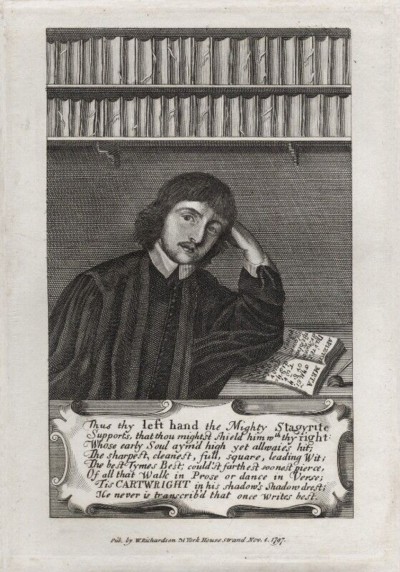 Thus thy left hand the Mighty Stagyrite
Supports, that thou mightst shield him wth thy right:
Whose early Soul aym'd high yet allwaies hit;
The sharpest, cleanest, full, square, leading Wit;
The best Tymes Best; could'st farthest soonest pierce,
Of all that Walk in Prose or dance in Verse;
'Tis CARTWRIGHT in his shadow's Shadow drest;
He never is transcrib'd that once Writes best.
Pub. by W. Richardson York House Strand Nov. 1.